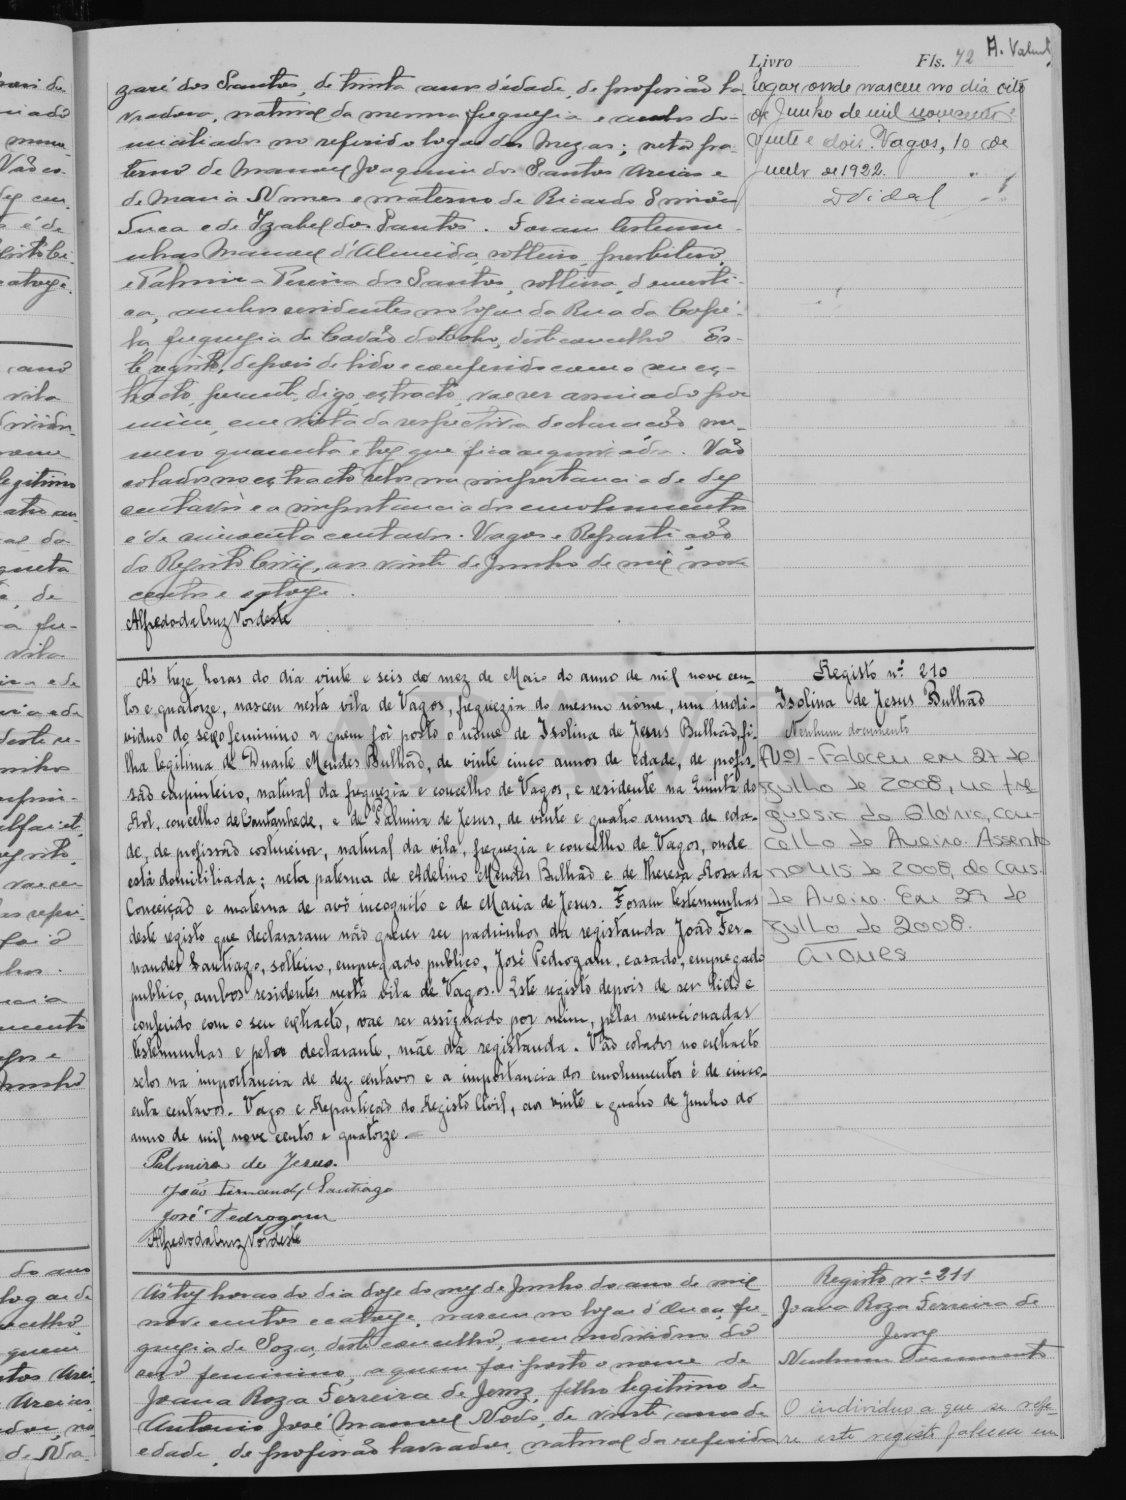 Livro Fls. 72 A. Valent
zaré dos Santos, de trinta anos d'edade, de profissão la-
vradora, natural da mesma freguesia e ambos do-
miciliados no referido logar das Mezas; neta pa-
terno de Manoel Joaquim dos Santos Areias e
de Maria Nunes e materno de Ricardo Simões
e de Izabel dos Santos. Foram testemu-
nhas Manoel d'Almeida, solteiro, presbitero,
e Palmira Pereira dos Santos, solteira, domesti-
ca, ambos residentes no logar da Rua da Cape-
la, freguesia de Covão do Lobo, deste concelho. Es-
te registo, depois de lido e conferido com o seu ex-
tracto, perante, digo, extracto, vae ser assinado por
mim, em vista da respectiva declaração nu-
mero quarenta e tres que fica arquivada. Vão
colados no extracto selos na importancia de dez
centavos e a importancia dos emolumentos
é de cincoenta centavos. Vagos e Repartição
do Registo Civil, aos vinte de Junho de mil nove
centos e catorze.
Alfredo da Cruz Nordeste
logar onde nasceu no dia oito
de Junho de mil novecentos e
vinte e dois. Vagos, 10 de
de 1922.
Vidal
A's treze horas do dia vinte e seis do mez de Maio do anno de mil nove cen-
tos e quatorze, nasceu nesta vila de Vagos, freguezia do mesmo nome, um indi-
viduo do sexo feminino a quem foi posto o nome de Isolina de Jesus Bulhão, fi-
lha legitima de Duarte Mendes Bulhão, de vinte cinco annos de edade, de profis-
são carpinteiro, natural da freguezia e concelho de Vagos, e residente na Quinta do
Rol, concelho de Cantanhede, e de Palmira de Jesus, de vinte e quatro annos de eda-
de, de profissão costureira, natural da vila, freguezia e concelho de Vagos, onde
está domiciliada; neta paterna de Adelino Mendes Bulhão e de Thereza Rosa da
Conceição e materna de avô incognito e de Maria de Jesus. Foram testemunhas
deste registo que declararam não querer ser padrinhos da registanda João Fer-
nandes Santiago, solteiro, empregado publico, José Pedrogam, casado, empregado
publico, ambos residentes nesta vila de Vagos. Este registo depois de ser lido e
conferido com o seu extracto, vae ser assignado por mim, pelas mencionadas
testemunhas e pela declarante, mãe da registanda. Vão colados no extracto
selos na importancia de dez centavos e a importancia dos emolumentos é de cinco-
enta centavos. Vagos e Repartição do Registo Civil, aos vinte e quatro de Junho do
anno de mil nove centos e quatorze.
Palmira de Jesus.
João Fernandes Santiago
José Pedrogam
Alfredo da Cruz Nordeste
Registo nº 210
Isolina de Jesus Bulhão
Nenhum documento
Nº1 - Faleceu em 27 de
Julho de 2008, na fre
guesia da Glória, con-
celho de Aveiro. Assento
nº 415 de 2008, da Cons.
de Aveiro. Em 29 de
Julho de 2008.
A's tres horas do dia doze do mez de Junho do ano de mil
nove centos e catorze, nasceu no logar d'Ouca, fre
guezia de Soza, deste concelho, um individuo do
sexo feminino, a quem foi posto o nome de
Joana Roza Ferreira de Jesus, filho legitimo de
Antonio José Manuel Novo, de vinte anos de
edade, de profissão lavrador, natural da referida
Registo nº 211
Joana Roza Ferreira de
Jesus
Nenhum Documento
O individuo a que se refe-
re este registo faleceu em